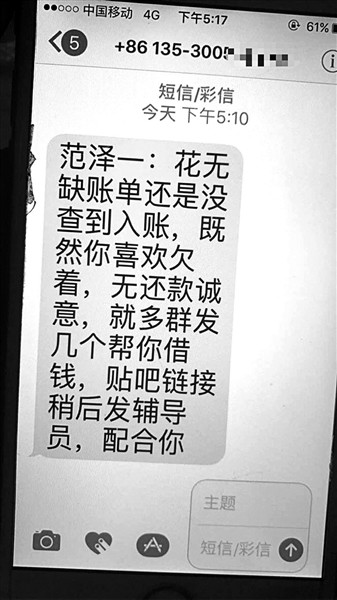 中国移动 4G 下午5:17 61%
5 +86 135-300
短信/彩信
今天 下午5:10
范泽一：花无
缺账单还是没
查到入账，既
然你喜欢欠
着，无还款诚
意，就多群发
几个帮你借
钱，贴吧链接
稍后发辅导
员，配合你
主题
短信/彩信